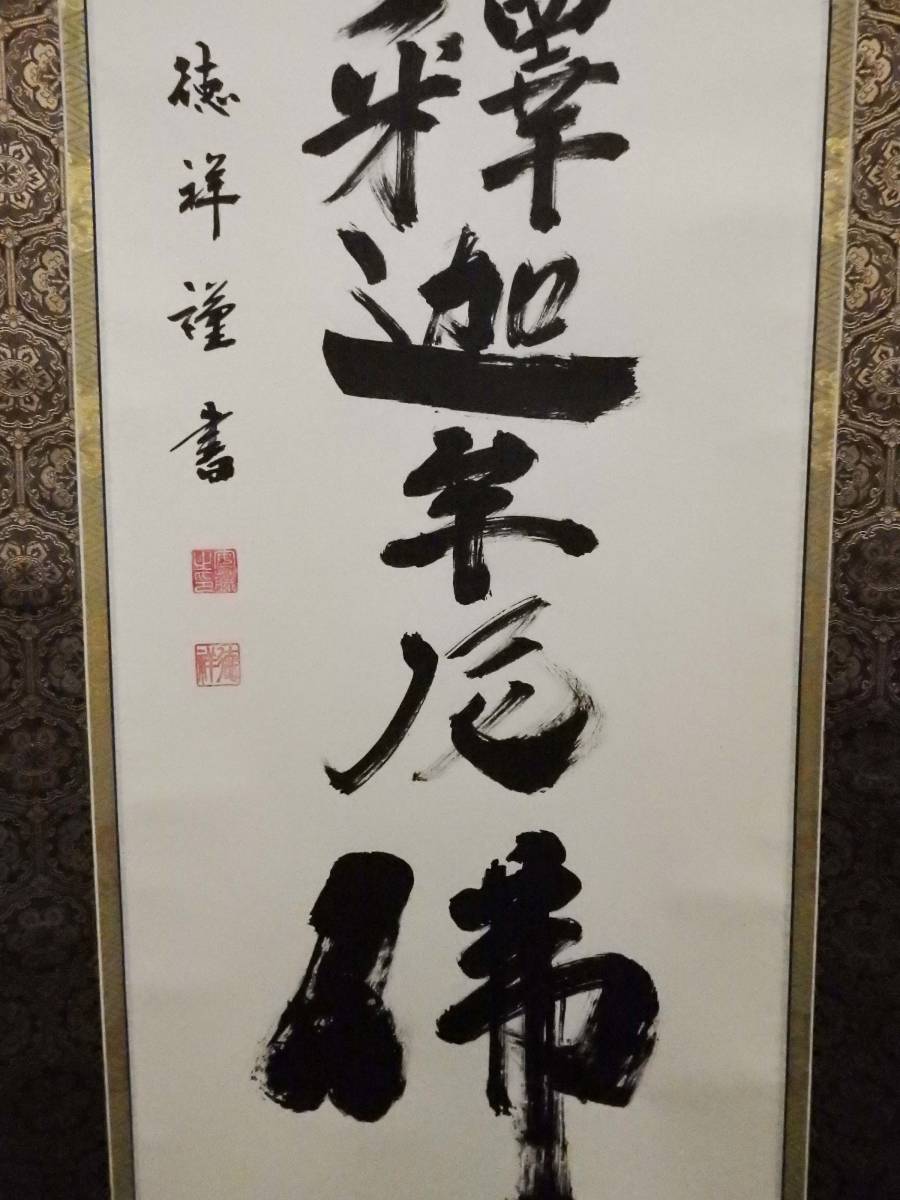 釋迦牟尼佛
徳祥謹書
徳祥